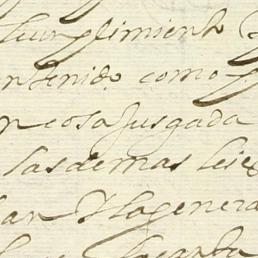 cumplimiento
ntenido como
n cosa Jusgada
las demas leies
lar Y la genera